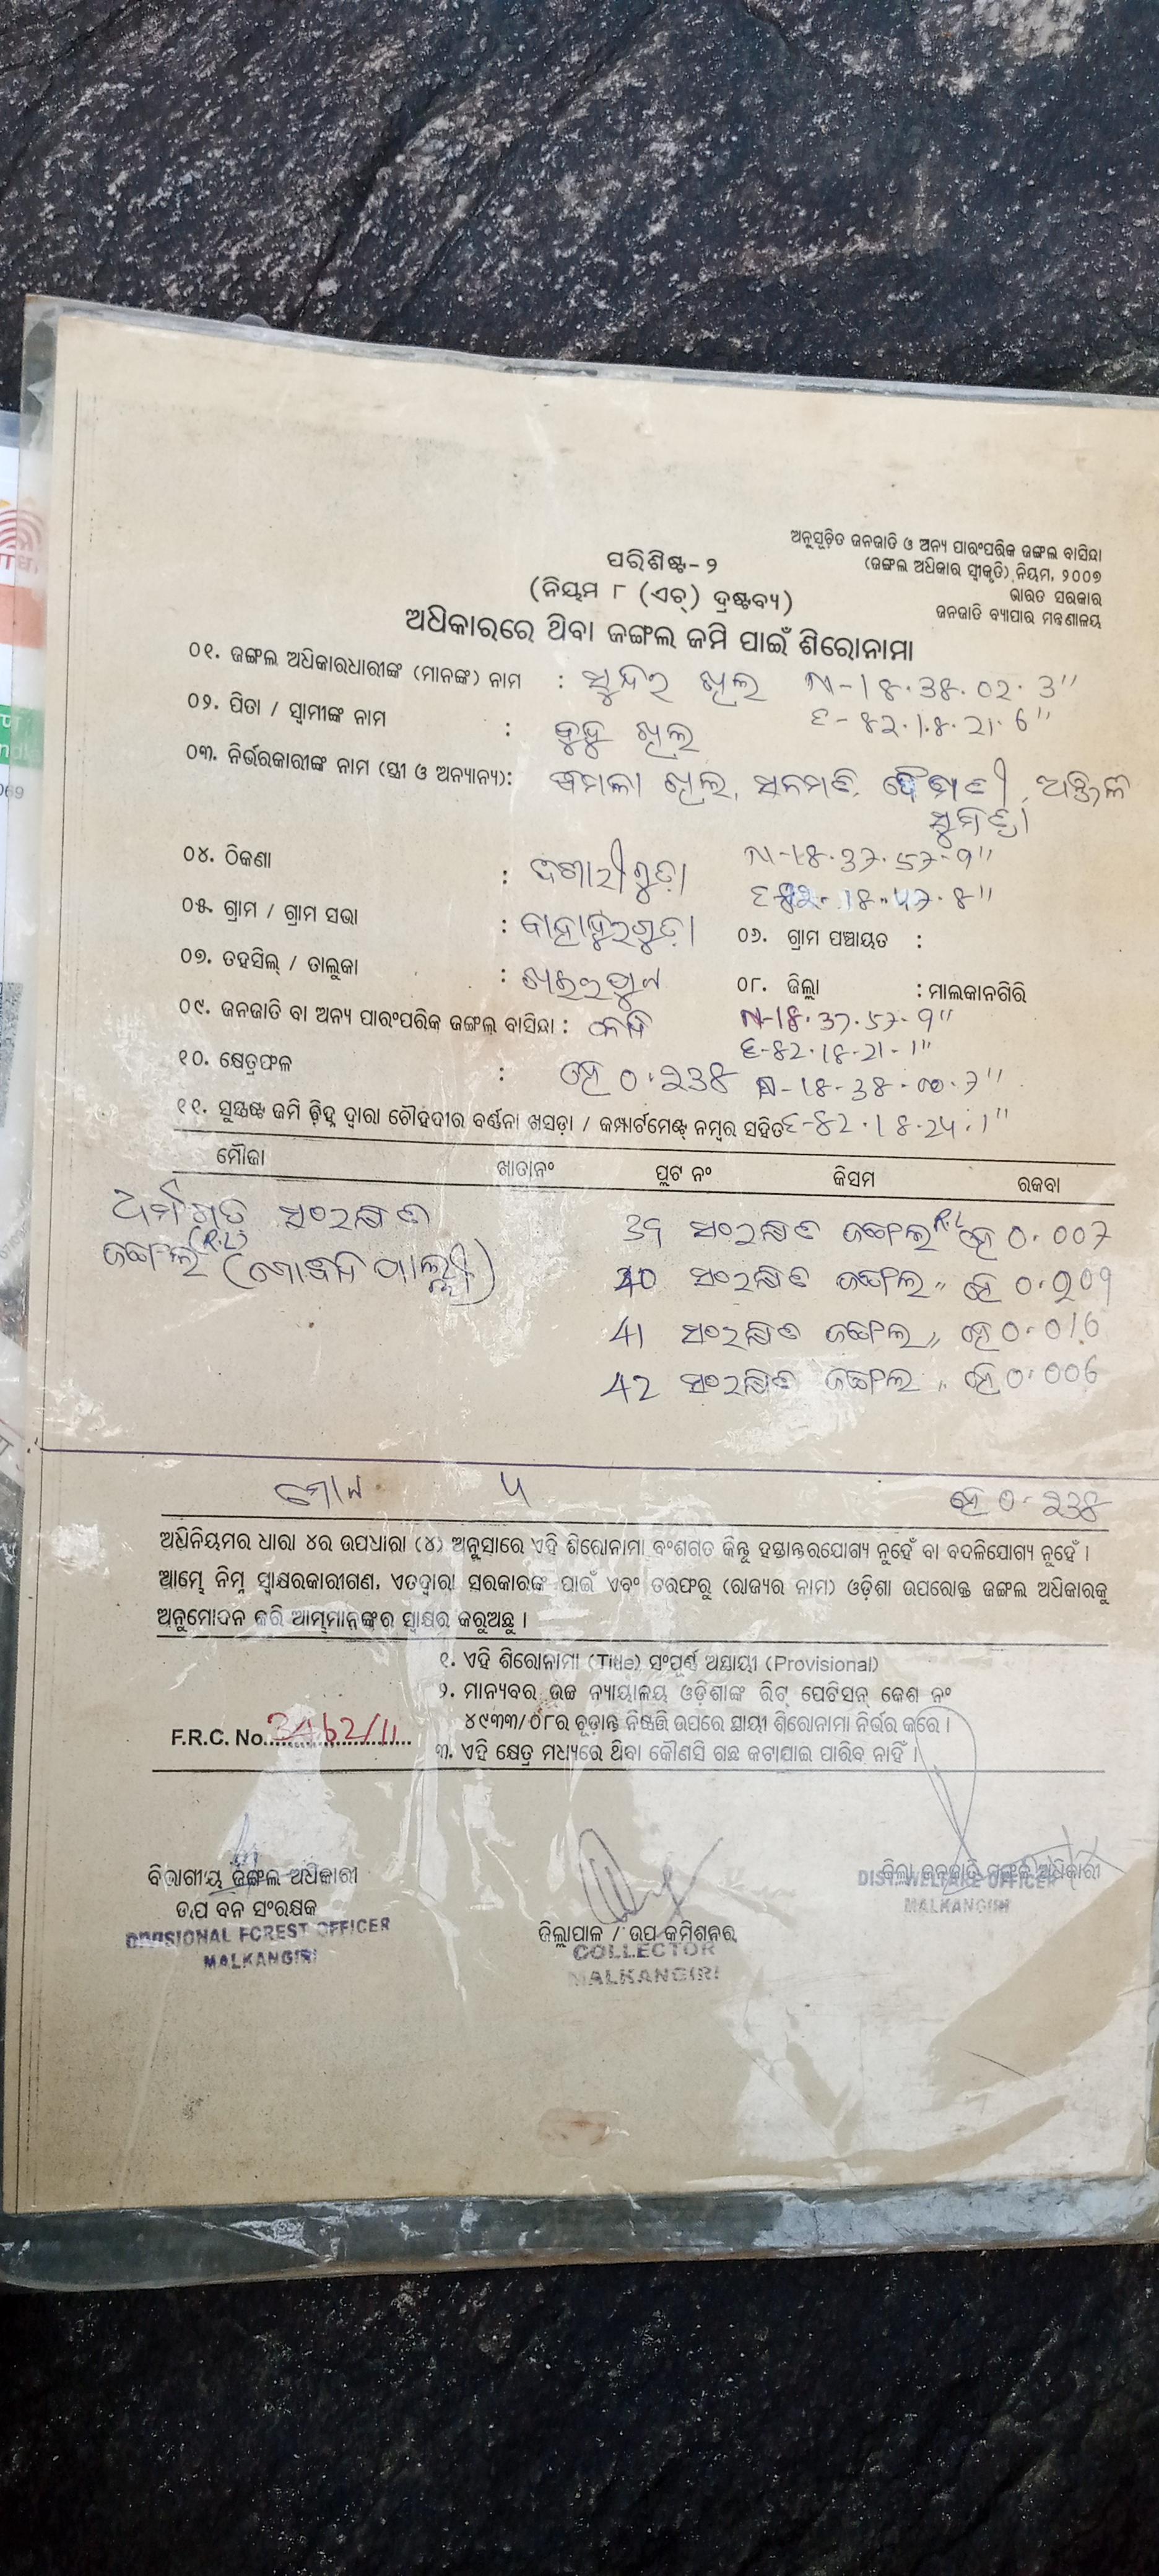 ଅନୁସୂଚିତ ଜନଜାତି ଓ ଅନ୍ୟ ପାରଂପରିକ ଜଙ୍ଗଲ ବାସିନ୍ଦା
(ଜଙ୍ଗଲ ଅଧିକାର ସ୍ୱୀକୃତି) ନିୟମ, ୨୦୦୭
ଭାରତ ସରକାର
ଜନଜାତି ବ୍ୟାପାର ମନ୍ତ୍ରଣାଳୟ
ପରିଶିଷ୍ଟ-୨
(ନିୟମ ୮ (ଏଚ୍) ଦ୍ରଷ୍ଟବ୍ୟ)
ଅଧିକାରରେ ଥିବା ଜଙ୍ଗଲ ଜମି ପାଇଁ ଶିରୋନାମା
୦୧. ଜଙ୍ଗଲ ଅଧିକାରଧାରୀଙ୍କ (ମାନଙ୍କ) ନାମ : N-18.38.02.3"
୦୨. ପିତା / ସ୍ୱାମୀଙ୍କ ନାମ : E-82.18.21.6"
୦୩. ନିର୍ଭରକାରୀଙ୍କ ନାମ (ସ୍ତ୍ରୀ ଓ ଅନ୍ୟାନ୍ୟ):
୦୪. ଠିକଣା : N-18.37.57-9"
୦୫. ଗ୍ରାମ / ଗ୍ରାମ ସଭା : ବାହାଦୁରଗୁଡ଼ା ୦୬. ଗ୍ରାମ ପଞ୍ଚାୟତ :
୦୭. ତହସିଲ୍ / ତାଲୁକା : ଖଇରପୁଟ ୦୮. ଜିଲ୍ଲା : ମାଲକାନଗିରି
୦୯. ଜନଜାତି ବା ଅନ୍ୟ ପାରଂପରିକ ଜଙ୍ଗଲ ବାସିନ୍ଦା : N-18.37.57-9"
E-82.18-21-1"
୧୦. କ୍ଷେତ୍ରଫଳ : ହେ ୦.୨୩୫ N-18-38-00.7"
୧୧. ସୁସ୍ପଷ୍ଟ ଜମି ଚିହ୍ନ ଦ୍ୱାରା ଚୌହଦୀର ବର୍ଣ୍ଣନା ଖସଡ଼ା / କମ୍ପାର୍ଟମେଣ୍ଟ୍ ନମ୍ବର ସହିତ E-82.18.24.1"
ମୌଜା ଖାତାନଂ ପ୍ଲଟ ନଂ କିସମ ରକବା
ସଂରକ୍ଷିତ 39 ସଂରକ୍ଷିତ ଜଙ୍ଗଲ R.L ହେ 0.007
ଜଙ୍ଗଲ (R.L) 40 ସଂରକ୍ଷିତ ଜଙ୍ଗଲ " ହେ 0.209
41 ସଂରକ୍ଷିତ ଜଙ୍ଗଲ " ହେ 0.016
42 ସଂରକ୍ଷିତ ଜଙ୍ଗଲ " ହେ 0.006
ମୋଟ ହେ ୦.୨୩୫
ଅଧିନିୟମର ଧାରା ୪ର ଉପଧାରା (୪) ଅନୁସାରେ ଏହି ଶିରୋନାମା ବଂଶଗତ କିନ୍ତୁ ହସ୍ତାନ୍ତରଯୋଗ୍ୟ ନୁହେଁ ବା ବଦଳିଯୋଗ୍ୟ ନୁହେଁ ।
ଆମ୍ଭେ ନିମ୍ନ ସ୍ୱାକ୍ଷରକାରୀଗଣ, ଏତଦ୍ୱାରା ସରକାରଙ୍କ ପାଇଁ ଏବଂ ତରଫରୁ (ରାଜ୍ୟର ନାମ) ଓଡ଼ିଶା ଉପରୋକ୍ତ ଜଙ୍ଗଲ ଅଧିକାରକୁ
ଅନୁମୋଦନ କରି ଆମ୍ଭମାନଙ୍କର ସ୍ୱାକ୍ଷର କରୁଅଛୁ ।
୧. ଏହି ଶିରୋନାମା (Title) ସଂପୂର୍ଣ୍ଣ ଅସ୍ଥାୟୀ (Provisional)
୨. ମାନ୍ୟବର ଉଚ୍ଚ ନ୍ୟାୟାଳୟ ଓଡ଼ିଶାଙ୍କ ରିଟ୍ ପେଟିସନ୍ କେଶ ନଂ
୪୯୩୩/୦୮ର ଚୂଡ଼ାନ୍ତ ନିଷ୍ପତ୍ତି ଉପରେ ସ୍ଥାୟୀ ଶିରୋନାମା ନିର୍ଭର କରେ ।
F.R.C. No. 3462/11
୩. ଏହି କ୍ଷେତ୍ର ମଧ୍ୟରେ ଥିବା କୌଣସି ଗଛ କଟାଯାଇ ପାରିବ ନାହିଁ ।
ବିଭାଗୀୟ ଜଙ୍ଗଲ ଅଧିକାରୀ
ଉପ ବନ ସଂରକ୍ଷକ
DIVISIONAL FOREST OFFICER
MALKANGIRI
ଜିଲ୍ଲାପାଳ / ଉପ କମିଶନର୍
COLLECTOR
MALKANGIRI
ଜିଲ୍ଲା ଜନଜାତି ମଙ୍ଗଳ ଅଧିକାରୀ
DIST. WELFARE OFFICER
MALKANGIRI